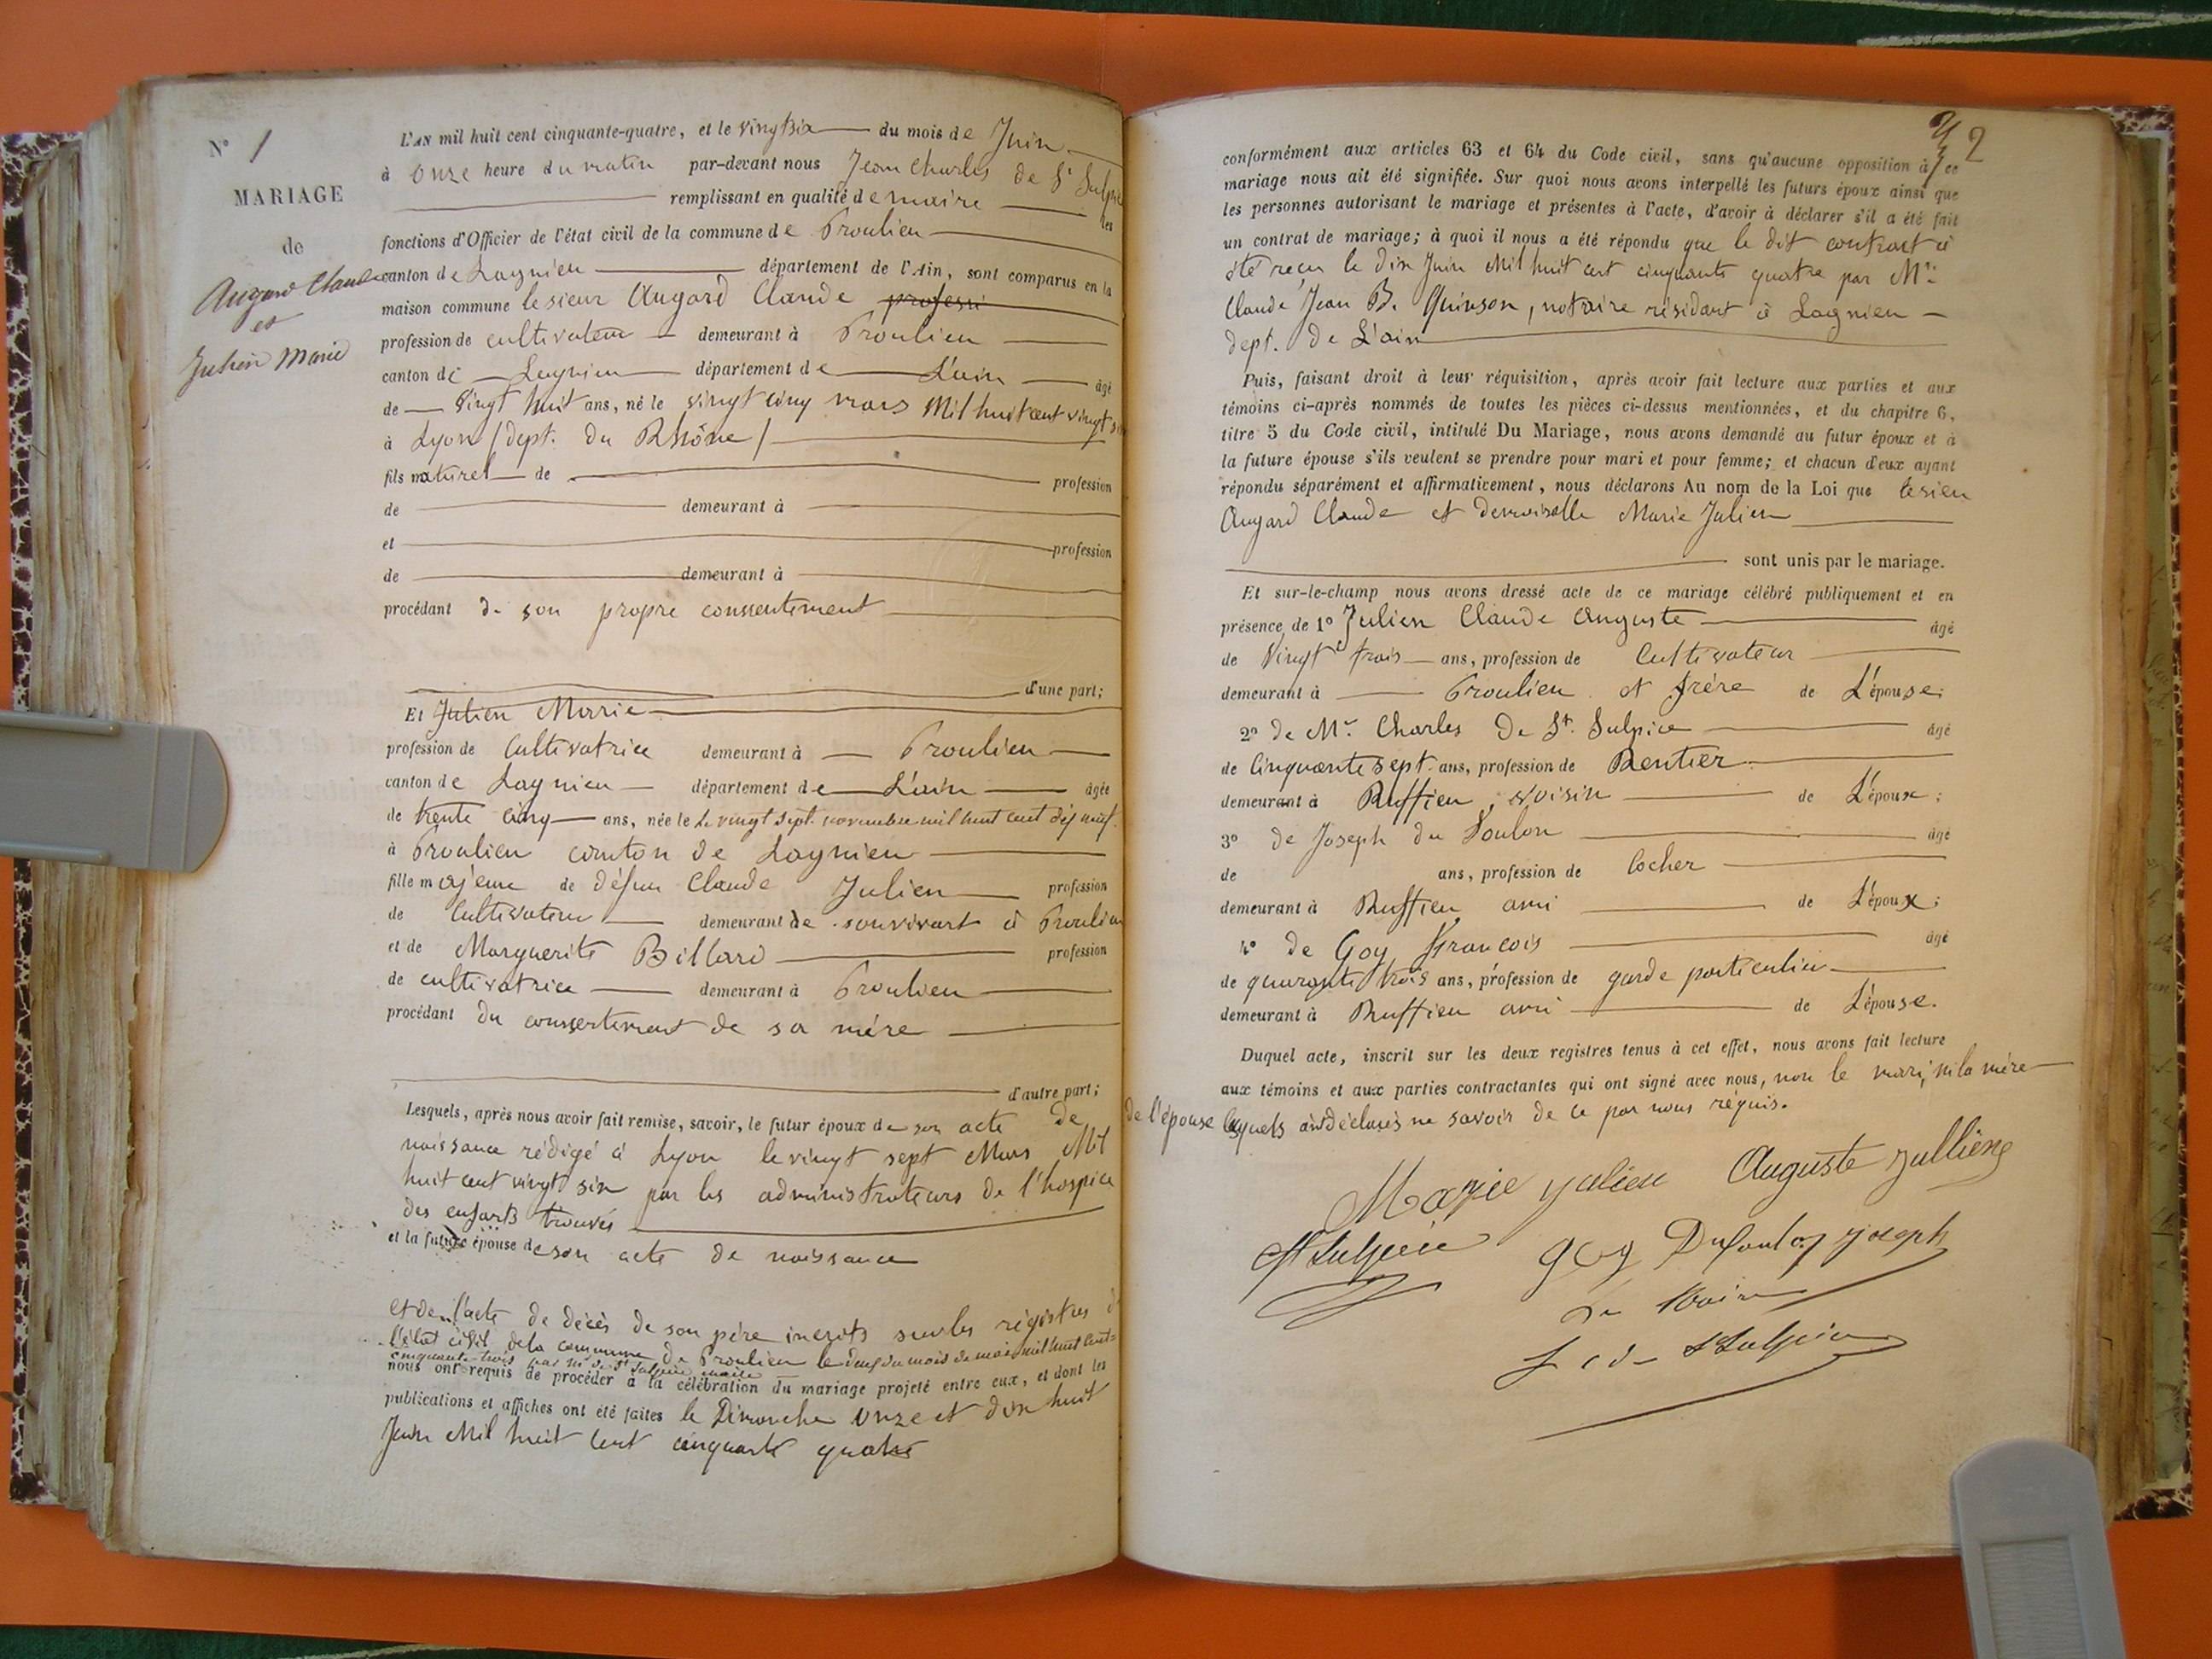 N° 1
MARIAGE
de
Augard Claude
et
Julien Marie
L'AN mil huit cent cinquante-quatre, et le vingtsix du mois de Juin
à onze heure du matin par-devant nous Jean Charles de St Sulpice
remplissant en qualité de maire les
fonctions d'Officier de l'état civil de la commune de Proulieu
canton de Lagnieu département de l'Ain, sont comparus en la
maison commune le sieur Augard Claude
profession de cultivateur demeurant à Proulieu
canton de Lagnieu département de L'ain âgé
de vingt huit ans, né le vingt cinq mars Mil huit cent vingt six
à Lyon (dept. du Rhône)
fils naturel de profession
de demeurant à
et profession
de demeurant à
procédant de son propre consentement
d'une part;
Et Julien Marie
profession de Cultivatrice demeurant à Proulieu
canton de Lagnieu département de L'ain âgée
de trente cinq ans, née le Le vingt sept. novembre mil huit cent dix neuf
à Proulieu canton de Lagnieu
fille majeure de défun Claude Julien profession
de Cultivateur demeurant de son vivant à Proulieu
et de Marguerite Billard profession
de cultivatrice demeurant à Proulieu
procédant du consentement de sa mère
d'autre part;
Lesquels, après nous avoir fait remise, savoir, le futur époux de son acte de
naissance rédigé à Lyon le vingt sept Mars Mil
huit cent vingt six par les administrateurs de l'hospice
des enfants trouvés
et la future épouse de son acte de naissance
et de l'acte de décès de son père inscrits sur les régistres de
l'état civil de la commune de Proulieu le deux du mois de mai mil huit cent
cinquante-trois par Mr de St Sulpice maire
nous ont requis de procéder à la célébration du mariage projeté entre eux, et dont les
publications et affiches ont été faites le Dimanche onze et dix huit
Juin Mil huit cent cinquante quatre
2
conformément aux articles 63 et 64 du Code civil, sans qu'aucune opposition à ce
mariage nous ait été signifiée. Sur quoi nous avons interpellé les futurs époux ainsi que
les personnes autorisant le mariage et présentes à l'acte, d'avoir à déclarer s'il a été fait
un contrat de mariage; à quoi il nous a été répondu que le dit contract a
été reçu le dix Juin Mil huit cent cinquante quatre par Mtre
Claude Jean B. Quinson, notaire résidant à Lagnieu
dept. de L'ain
Puis, faisant droit à leur réquisition, après avoir fait lecture aux parties et aux
témoins ci-après nommés de toutes les pièces ci-dessus mentionnées, et du chapitre 6,
titre 5 du Code civil, intitulé Du Mariage, nous avons demandé au futur époux et à
la future épouse s'ils veulent se prendre pour mari et pour femme; et chacun d'eux ayant
répondu séparément et affirmativement, nous déclarons Au nom de la Loi que le sieu
Augard Claude et demoiselle Marie Julien
sont unis par le mariage.
Et sur-le-champ nous avons dressé acte de ce mariage célébré publiquement et en
présence de 1° Julien Claude Auguste âgé
de Vingt trois ans, profession de Cultivateur
demeurant à Proulieu et frère de L'épouse;
2° de Mr. Charles De St. Sulpice âgé
de Cinquante sept ans, profession de Rentier
demeurant à Ruffieu, voisin de L'époux;
3° de Joseph du Soulon âgé
de ans, profession de Cocher
demeurant à Ruffieu, ami de L'époux;
4° de Goy François âgé
de quarante trois ans, profession de garde particulier
demeurant à Ruffieu ami de L'épouse.
Duquel acte, inscrit sur les deux registres tenus à cet effet, nous avons fait lecture
aux témoins et aux parties contractantes qui ont signé avec nous, non le mari, ni la mère
de l'épouse lesquels ont déclarés ne savoir de ce par nous réquis.
Marie julien Auguste jullien
St Sulpice goy Dusoulon joseph
Le Maire
J C de St Sulpice